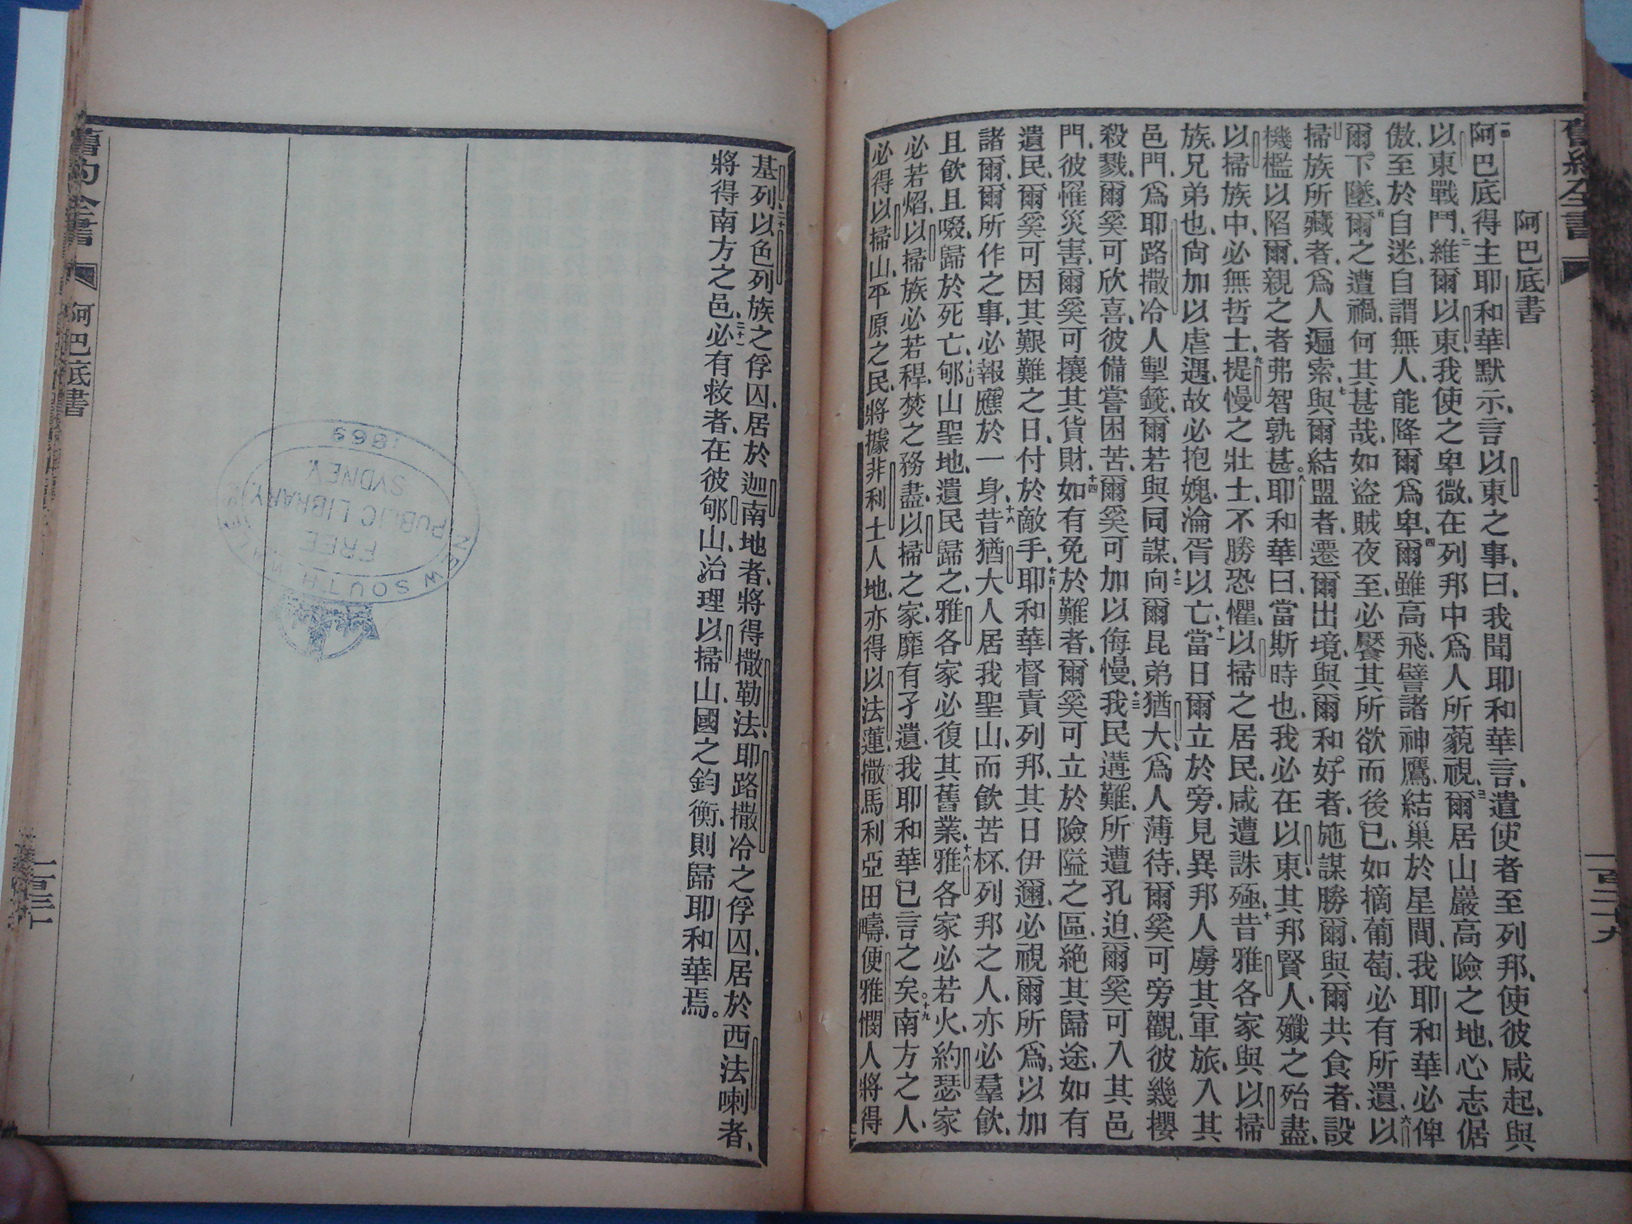 舊約全書
一百二十九
阿巴底書
阿巴底得主耶和華默示、言以東之事、曰、我聞耶和華言、遣使者至列邦、使彼咸起、與
以東戰鬥、二維爾以東、我使之卑微、在列邦中、爲人所藐視、三爾居山巖高險之地、心志倨
傲、至於自迷、自謂無人能降爾爲卑、四爾雖高飛、譬諸神鷹、結巢於星間、我耶和華必俾
爾下墜、五爾之遭禍、何其甚哉、如盜賊夜至、必饜其所欲而後已、如摘葡萄、必有所遺、六以
掃族所藏者、爲人遍索、七與爾結盟者、遷爾出境、與爾和好者、施謀勝爾、與爾共食者、設
機檻以陷爾、親之者弗智孰甚、八耶和華曰、當斯時也、我必在以東其邦賢人、殲之殆盡、
以掃族中、必無哲士、九提慢之壯士、不勝恐懼、以掃之居民、咸遭誅殛、十昔雅各家與以掃
族、兄弟也、尙加以虐遇、故必抱媿、淪胥以亡、十一當日爾立於旁、見異邦人虜其軍旅、入其
邑門、爲耶路撒冷人掣籤、爾若與同謀、十二向爾昆弟猶大、爲人薄待、爾奚可旁觀、彼幾櫻
殺戮、爾奚可欣喜、彼備嘗困苦、爾奚可加以侮慢、十三我民遘難、所遭孔迫、爾奚可入其邑
門、彼罹災害、爾奚可攘其貨財、十四如有免於難者、爾奚可立於險隘之區、絕其歸途、如有
遺民、爾奚可因其艱難之日、付於敵手、十五耶和華督責列邦、其日伊邇、必視爾所爲、以加
諸爾、爾所作之事、必報應於一身、十六昔猶大人居我聖山、而飲苦杯、列邦之人、亦必羣飲、
且飲且啜、歸於死亡、十七郇山聖地、遺民歸之、雅各家必復其舊業、十八雅各家必若火、約瑟家
必若焰、以掃族必若稈、焚之務盡、以掃之家、靡有孑遺、我耶和華已言之矣。十九南方之人、
必得以掃山、平原之民、將據非利士人地、亦得以法蓮撒馬利亞田疇、便雅憫人將得
基列、二十以色列族之俘囚、居於迦南地者、將得撒勒法、耶路撒冷之俘囚、居於西法喇者、
將得南方之邑、二十一必有救者、在彼郇山、治理以掃山、國之鈞衡、則歸耶和華焉。
NEW SOUTH WALES
FREE
PUBLIC LIBRARY
SYDNEY
1869
舊約全書
阿巴底書
一百三十